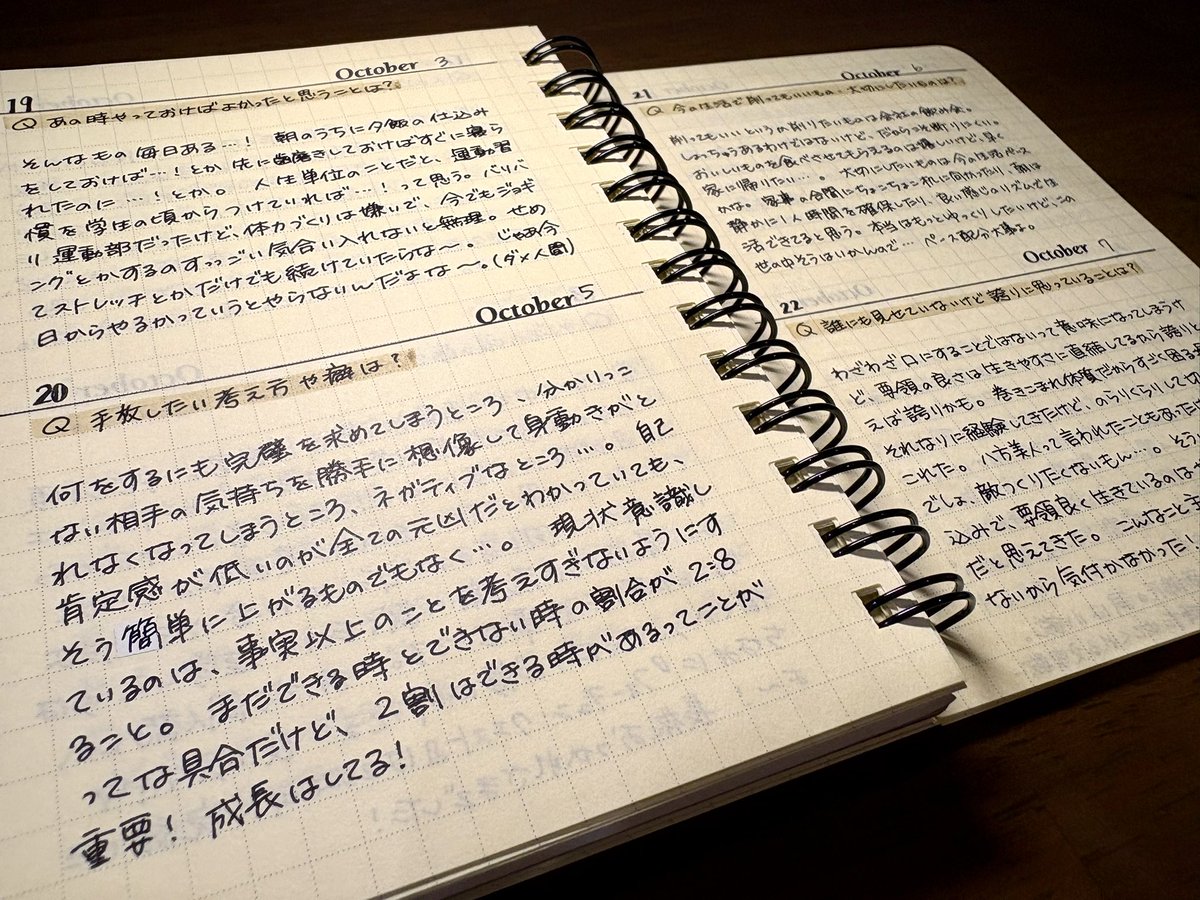 October 3
19
Q あの時やっておけばよかったと思うことは?
そんなもの毎日ある…! 朝のうちに夕飯の仕込み
をしておけば…!とか 先に歯磨きしておけばすぐに寝ら
れたのに…!とか。 人生単位のことだと、運動習
慣を学生の頃からつけていれば…!って思う。バリバ
リ運動部だったけど、体力づくりは嫌いで、今でもジョギ
ングとかするのすっっごい気合い入れないと無理。せめ
てストレッチとかだけでも続けていたらな〜。じゃあ今
日からやるかっていうとやらないんだよな〜。(ダメ人間)
October 5
20
Q 手放したい考え方や癖は?
何をするにも完璧を求めてしまうところ、分かりっこ
ない相手の気持ちを勝手に想像して身動きがと
れなくなってしまうところ、ネガティブなところ…。自己
肯定感が低いのが全ての元凶だとわかっていても、
そう簡単に上がるものでもなく…。 現状意識し
ているのは、事実以上のことを考えすぎないようにす
ること。まだできる時とできない時の割合が2:8
ってな具合だけど、2割はできる時があるってことが
重要! 成長はしてる!
October 6
21
Q 今の生活で削ってもいいもの、大切にしたいものは?
削ってもいいというか削りたいものは会社の飲み会。
しょっちゅうあるわけではないけど、だからこそ断りにくい。
おいしいものを食べさせてもらえるのは嬉しいけど、早く
家に帰りたい…。 大切にしたいものは今の生活ペース
かな。家事の合間にちょこちょこれに向かったり、朝は
静かに1人時間を確保したり、良い感じのリズムで生
活できてると思う。本当はもっとゆっくりしたいけど、この
世の中そうはいかんので… ペース配分大事よ。
October 7
22
Q 誰にも見せていないけど誇りに思っていることは?
わざわざ口にすることではないって意味になってしまうけ
ど、要領の良さは生きやすさに直結してるから誇りと
えば誇りかも。巻きこまれ体質だからすごく困る
それなりに経験してきたけど、のらりくらりして
これた。八方美人って言われたこともあった
でしょ、敵つくりたくないもん…。そう
込みで、要領良く生きているのは
だと思えてきた。こんなこと
ないから気付かなかった!